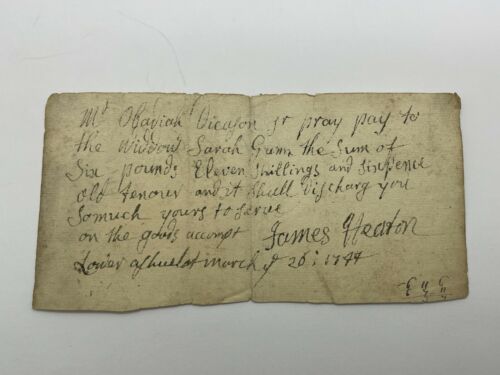 Mr Obadiah Dicason sr pray pay to
the Widdow Sarah Gunn the Sum of
Six pounds Eleven Shillings and Sixpence
old tenour and it shull Discharg you
Somuch yours to Serve
on the goods accompt James Heaton
Lower ashuelot march ye 26: 1744